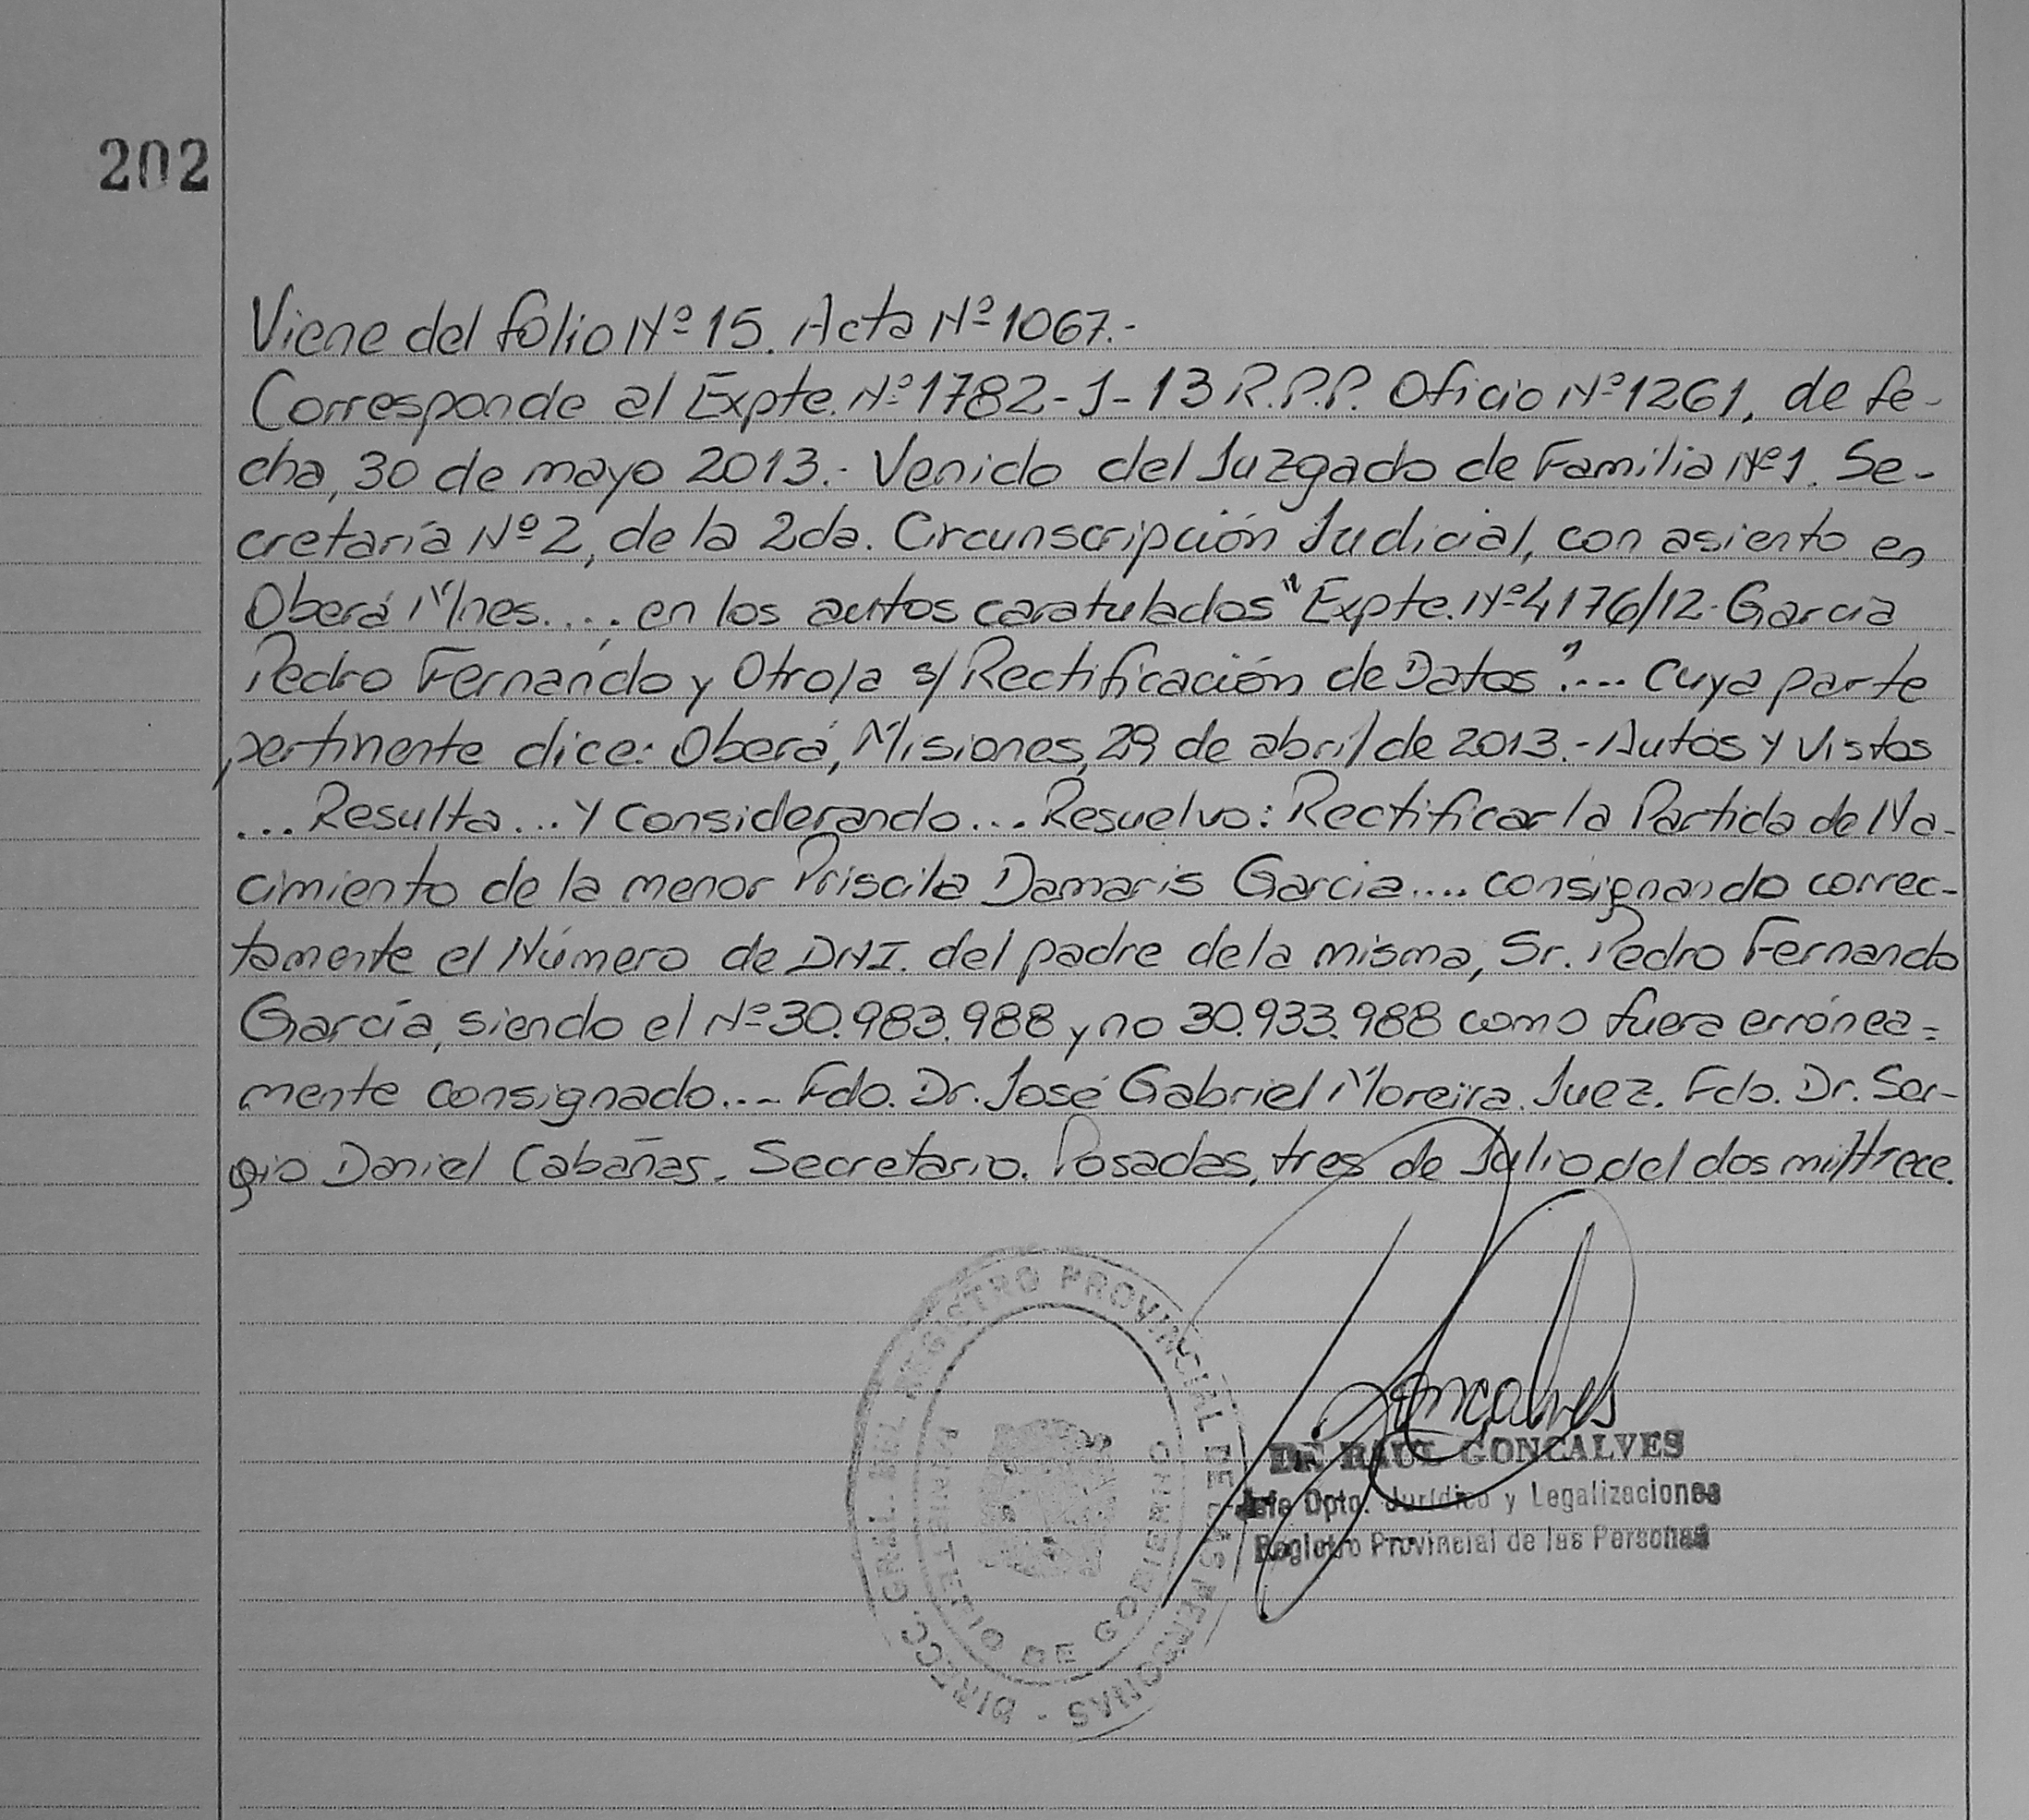 202
Viene del folio Nº 15. Acta Nº 1067.-
Corresponde al Expte. Nº 1782-J-13 R.P.P. Oficio Nº 1261, de fe-
cha, 30 de mayo 2013.- Venido del Juzgado de Familia Nº1. Se-
cretaría Nº 2, de la 2da. Circunscripción Judicial, con asiento en
Oberá Mnes.... en los autos caratulados "Expte. Nº 4176/12-García
Pedro Fernando y Otro/a s/ Rectificación de Datos".... Cuya parte
pertinente dice: Oberá, Misiones, 29 de abril de 2013.- Autos y Vistos
... Resulta... Y Considerando... Resuelvo: Rectificar la Partida de Na-
cimiento de la menor Priscila Damaris Garcia.... consignando correc-
tamente el Número de DNI. del padre de la misma, Sr. Pedro Fernando
García, siendo el Nº 30.983.988 y no 30.933.988 como fuera errónea=
mente consignado.... Fdo. Dr. José Gabriel Moreira. Juez. Fdo. Dr. Ser-
gio Daniel Cabañas. Secretario. Posadas, tres de Julio del dos mil trece.
DIRECC. GRAL. DEL REGISTRO PROVINCIAL DE LAS PERSONAS -
MINISTERIO DE GOBIERNO
Goncalves
DR. RAUL GONCALVES
Jefe Dpto. Jurídico y Legalizaciones
Registro Provincial de las Personas